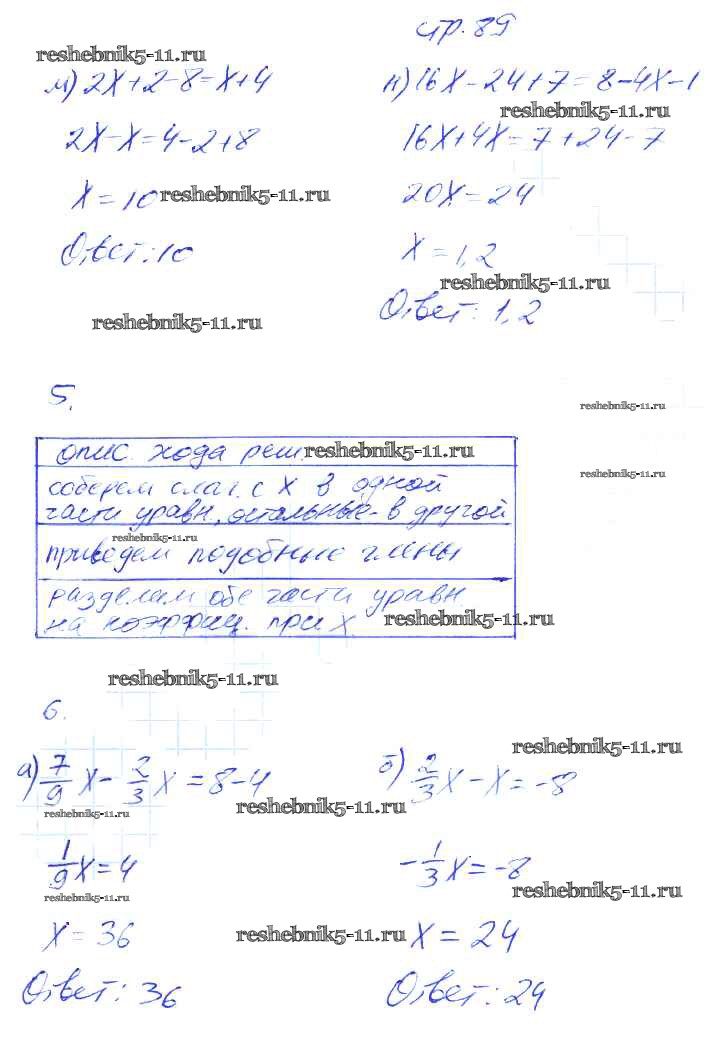 стр. 89
reshebnik5-11.ru
м) 2x+2-8=x+4
2x-x=4-2+8
x=10 reshebnik5-11.ru
Ответ: 10
reshebnik5-11.ru
н) 16x-24+7=8-4x-1
reshebnik5-11.ru
16x+4x=7+24-7
20x=24
x=1,2
reshebnik5-11.ru
Ответ: 1,2
5.
reshebnik5-11.ru
опис. хода реш. reshebnik5-11.ru
соберем слаг. с x в одной
reshebnik5-11.ru
части уравн., остальные в другой
reshebnik5-11.ru
приведем подобные члены
разделим обе части уравн
на коэффиц. при x. reshebnik5-11.ru
reshebnik5-11.ru
6.
а) 7/9 x - 2/3 x = 8-4
reshebnik5-11.ru
reshebnik5-11.ru
1/9 x = 4
reshebnik5-11.ru
x = 36
reshebnik5-11.ru
Ответ: 36
reshebnik5-11.ru
б) 2/3 x - x = -8
-1/3 x = -8
reshebnik5-11.ru
x = 24
Ответ: 24